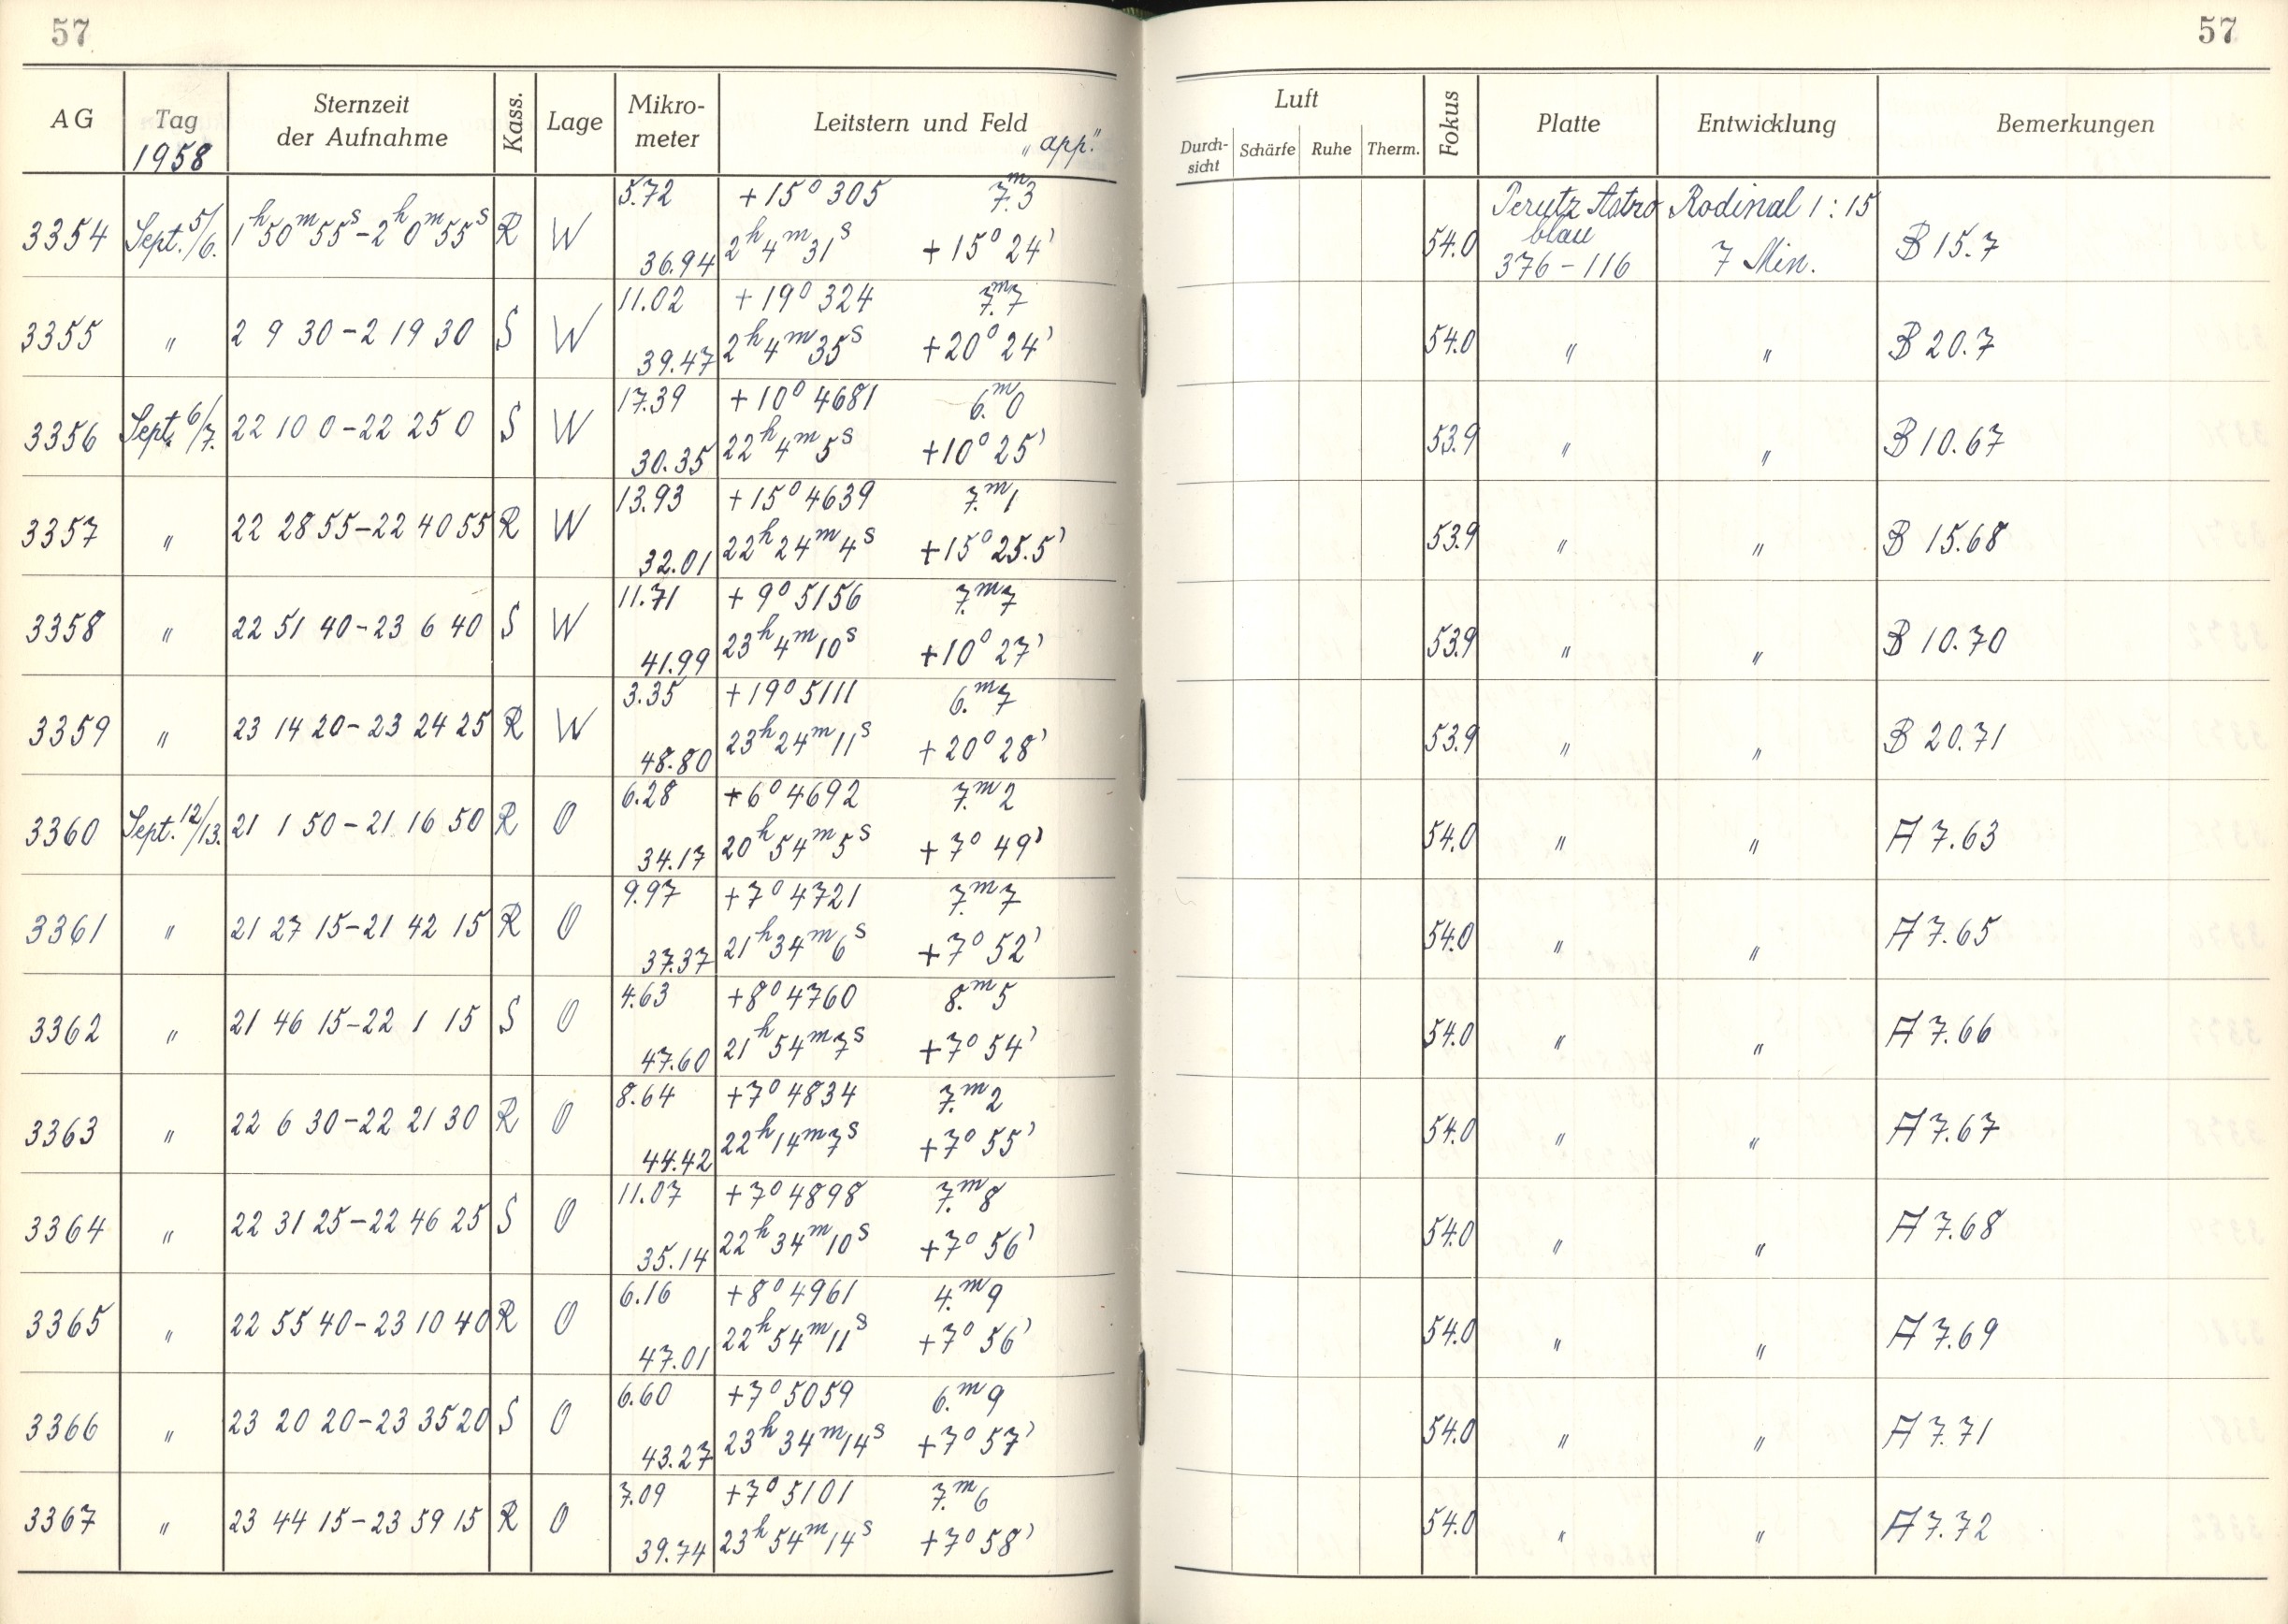 57
57
AG Tag Sternzeit der Aufnahme Kass. Lage Mikro-meter Leitstern und Feld
1958 „app."
Luft Fokus Platte Entwicklung Bemerkungen
Durch-sicht Schärfe Ruhe Therm.
5.72 +15° 305 7.ᵐ3 Perutz Astro Rodinal 1:15
3354 Sept. 5/6. 1ʰ50ᵐ55ˢ-2ʰ0ᵐ55ˢ R W 36.94 2ʰ4ᵐ31ˢ +15° 24' 54.0 blau 376-116 7 Min. B 15.7
11.02 +19° 324 7.ᵐ7
3355 " 2 9 30-2 19 30 S W 39.47 2ʰ4ᵐ35ˢ +20° 24' 54.0 " " B 20.7
17.39 +10° 4681 6.ᵐ0
3356 Sept. 6/7. 22 10 0-22 25 0 S W 30.35 22ʰ4ᵐ5ˢ +10° 25' 53.9 " " B 10.67
13.93 +15° 4639 7.ᵐ1
3357 " 22 28 55-22 40 55 R W 32.01 22ʰ24ᵐ4ˢ +15° 25.5' 53.9 " " B 15.68
11.71 +9° 5156 7.ᵐ7
3358 " 22 51 40-23 6 40 S W 41.99 23ʰ4ᵐ10ˢ +10° 27' 53.9 " " B 10.70
3.35 +19° 5111 6.ᵐ7
3359 " 23 14 20-23 24 25 R W 48.80 23ʰ24ᵐ11ˢ +20° 28' 53.9 " " B 20.71
6.28 +6° 4692 7.ᵐ2
3360 Sept. 12/13. 21 1 50-21 16 50 R O 34.17 20ʰ54ᵐ5ˢ +7° 49' 54.0 " " A 7.63
9.97 +7° 4721 7.ᵐ7
3361 " 21 27 15-21 42 15 R O 37.37 21ʰ34ᵐ6ˢ +7° 52' 54.0 " " A 7.65
4.63 +8° 4760 8.ᵐ5
3362 " 21 46 15-22 1 15 S O 47.60 21ʰ54ᵐ7ˢ +7° 54' 54.0 " " A 7.66
8.64 +7° 4834 7.ᵐ2
3363 " 22 6 30-22 21 30 R O 44.42 22ʰ14ᵐ7ˢ +7° 55' 54.0 " " A 7.67
11.07 +7° 4898 7.ᵐ8
3364 " 22 31 25-22 46 25 S O 35.14 22ʰ34ᵐ10ˢ +7° 56' 54.0 " " A 7.68
6.16 +8° 4961 4.ᵐ9
3365 " 22 55 40-23 10 40 R O 47.01 22ʰ54ᵐ11ˢ +7° 56' 54.0 " " A 7.69
6.60 +7° 5059 6.ᵐ9
3366 " 23 20 20-23 35 20 S O 43.27 23ʰ34ᵐ14ˢ +7° 57' 54.0 " " A 7.71
7.09 +7° 5101 7.ᵐ6
3367 " 23 44 15-23 59 15 R O 39.74 23ʰ54ᵐ14ˢ +7° 58' 54.0 " " A 7.72